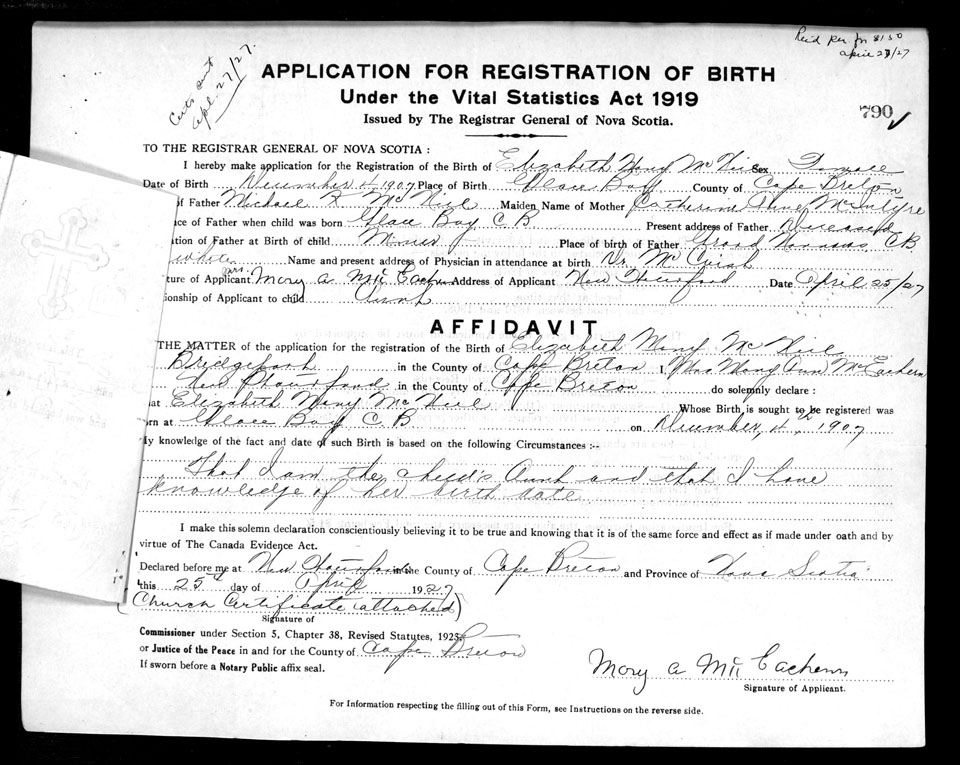 Rec'd per for 8150
April 27/27
Certs sent
Apl. 27/27.
APPLICATION FOR REGISTRATION OF BIRTH
Under the Vital Statistics Act 1919
Issued by The Registrar General of Nova Scotia.
790
TO THE REGISTRAR GENERAL OF NOVA SCOTIA :
I hereby make application for the Registration of the Birth of Elizabeth Mary McNeil Sex Female
Date of Birth December 4 1907 Place of Birth Glace Bay County of Cape Breton
of Father Michael McNeil Maiden Name of Mother Catherine Anne McIntyre
ce of Father when child was born Glace Bay C B Present address of Father Deceased
ation of Father at Birth of child Miner Place of birth of Father Grand Narrows C B
white Name and present address of Physician in attendance at birth Dr.
ture of Applicant Mrs. Mary A McEachern Address of Applicant New Date April 25/27
ionship of Applicant to child Aunt
AFFIDAVIT
THE MATTER of the application for the registration of the Birth of Elizabeth Mary McNeil
in the County of Cape Breton I, Mrs Mary Ann McEachern
New in the County of Cape Breton do solemnly declare :
at Elizabeth Mary McNeil Whose Birth is sought to be registered was
rn at Glace Bay C B on December, 4, 1907
y knowledge of the fact and date of such Birth is based on the following Circumstances :--
That I am the child's Aunt and that I have
knowledge of her birth date
I make this solemn declaration conscientiously believing it to be true and knowing that it is of the same force and effect as if made under oath and by
virtue of The Canada Evidence Act.
Declared before me at New in the County of Cape Breton and Province of Nova Scotia
this 25th day of April 1927
(Church Certificate attached)
Signature of
Commissioner under Section 5, Chapter 38, Revised Statutes, 1923,
or Justice of the Peace in and for the County of Cape Breton
If sworn before a Notary Public affix seal.
Mary A McEachern
Signature of Applicant.
For Information respecting the filling out of this Form, see Instructions on the reverse side.